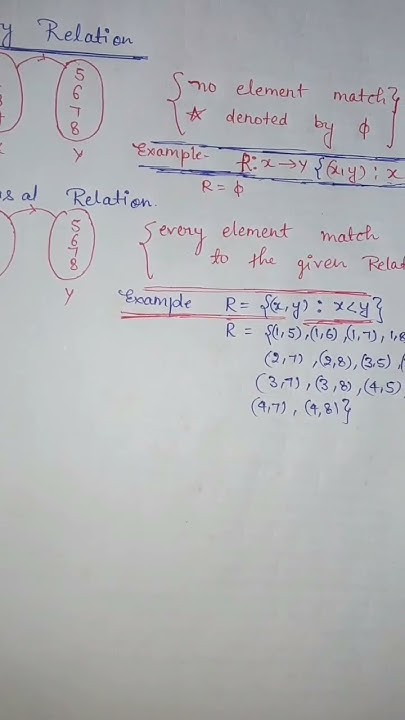 y Relation
5
6
7
8
y
{no element match}
☆ denoted by ϕ
Example- R: x → y {(x,y) : x
R = ϕ
sal Relation.
5
6
7
8
y
{every element match
to the given Relat
Example R = {(x,y) : x<y}
R = {(1,5),(1,6),(1,7),1,8
(2,7),(2,8),(3,5),(
(3,7),(3,8),(4,5),
(4,7),(4,8)}